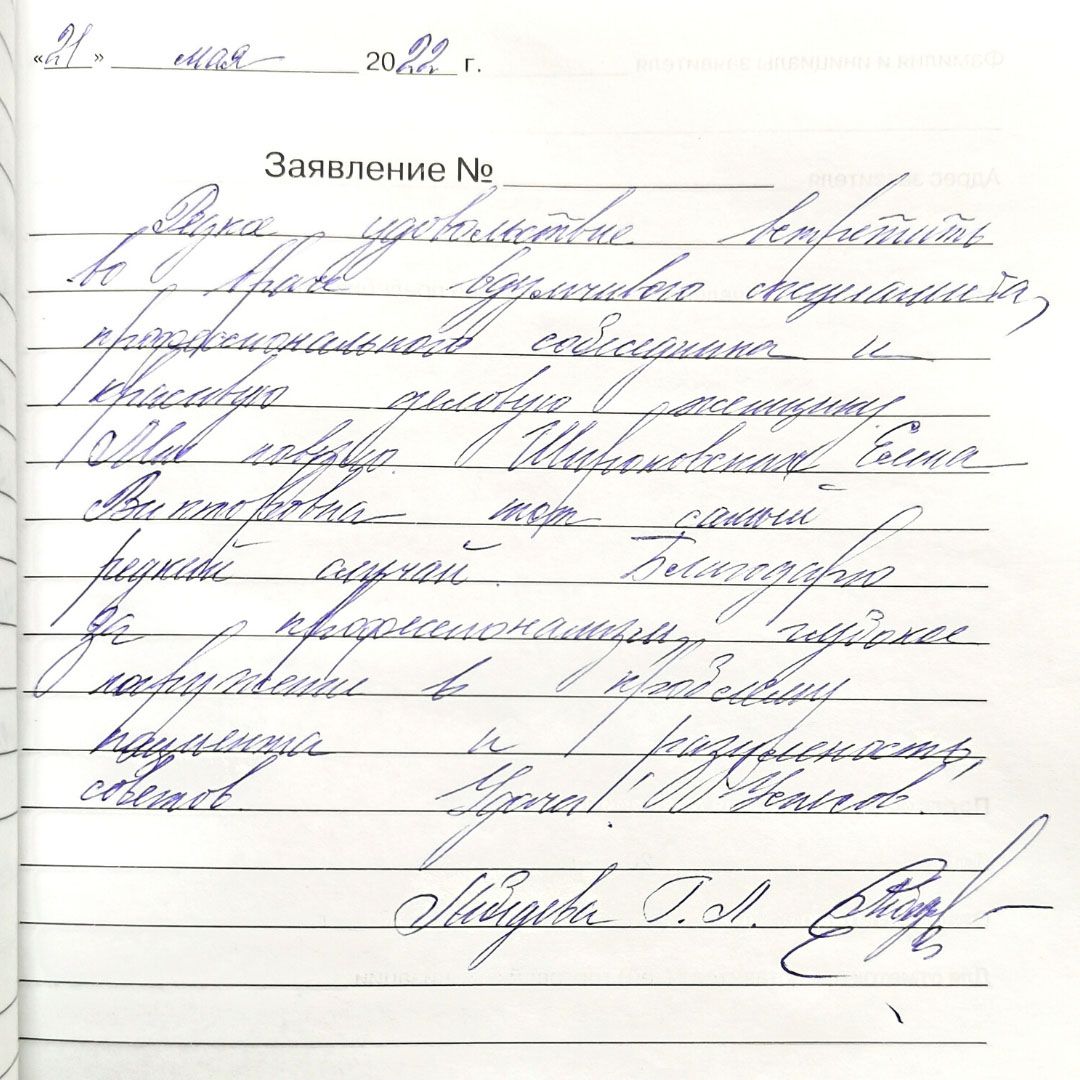 «21» мая 2022 г.
Заявление №
Редкое удовольствие встретить
во враче вдумчивого специалиста,
профессионального собеседника и
красивую деловую женщину.
Мне повезло. Широковских Елена
Викторовна тот самый
редкий случай. Благодарю
за профессионализм, глубокое
погружение в проблему
пациента и разумность
советов. Удачи! И Успехов.
Г. Л.